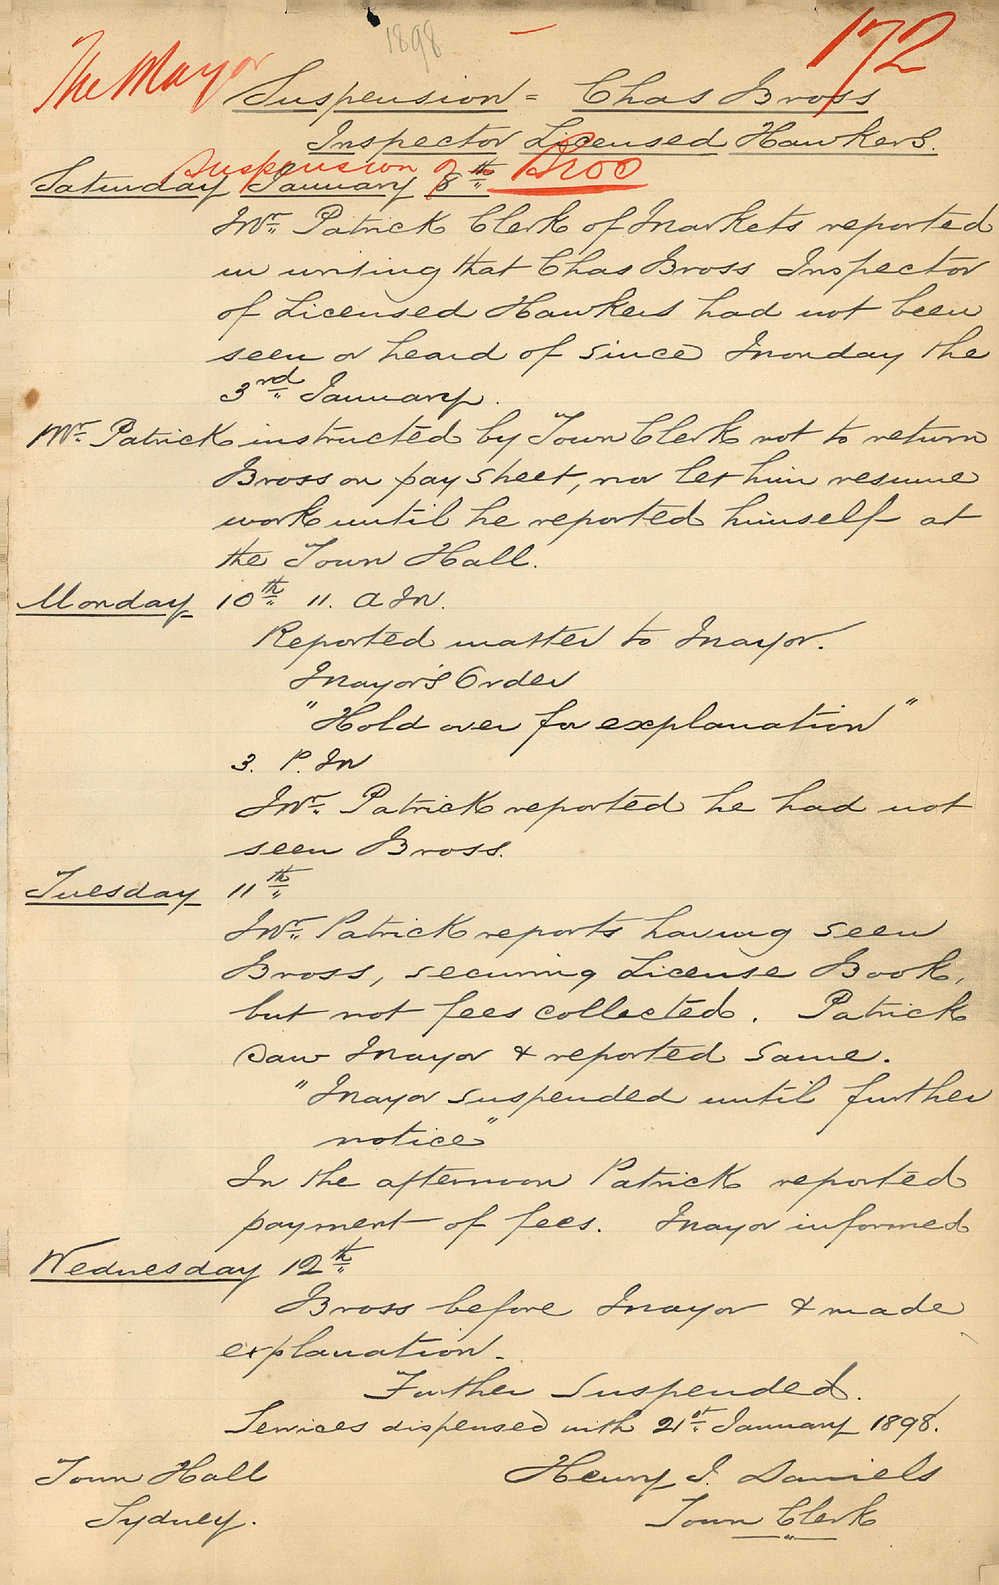 1898
172
The Mayor
Suspension = Chas Bross
Inspector Licensed Hawkers.
Suspension of Bross
Saturday January 8th
Mr. Patrick Clerk of Markets reported
in writing that Chas Bross Inspector
of Licensed Hawkers had not been
seen or heard of since Monday the
3rd January.
Mr. Patrick instructed by Town Clerk not to return
Bross on pay sheet, nor let him resume
work until he reported himself at
the Town Hall.
Monday 10th 11. A.M.
Reported matter to Mayor.
Mayor's Order
"Hold over for explanation"
3. P.M
Mr. Patrick reported he had not
seen Bross.
Tuesday 11th
Mr. Patrick reports having seen
Bross, securing License Book,
but not fees collected. Patrick
saw Mayor & reported same.
"Mayor suspended until further
notice"
In the afternoon Patrick reported
payment of fees. Mayor informed
Wednesday 12th
Bross before Mayor & made
explanation.
Further Suspended.
Services dispensed with 21st January 1898.
Town Hall Henry J. Daniels
Sydney. Town Clerk